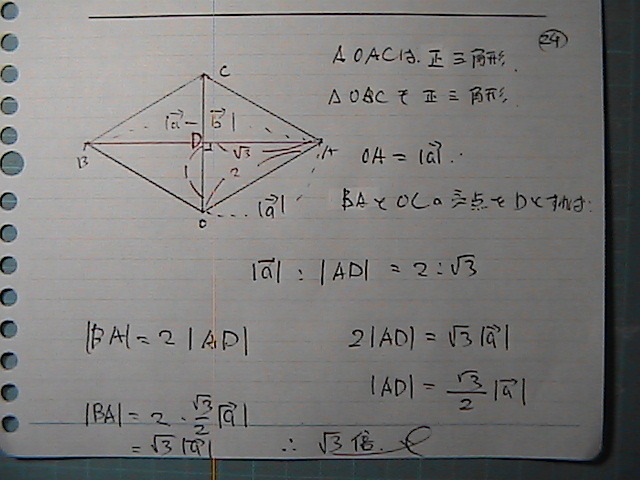 24
△OACは、正三角形.
△OBCも正三角形.
C
|a⃗ - b⃗|
B
D
√3
A
1
2
|a⃗|
O
OA = |a⃗|.
BAとOCの交点をDとすれば.
|a⃗| : |AD| = 2 : √3
|BA| = 2|AD|
2|AD| = √3|a⃗|
|AD| = √3/2 |a⃗|
|BA| = 2 · √3/2 |a⃗|
= √3|a⃗|
∴ √3倍